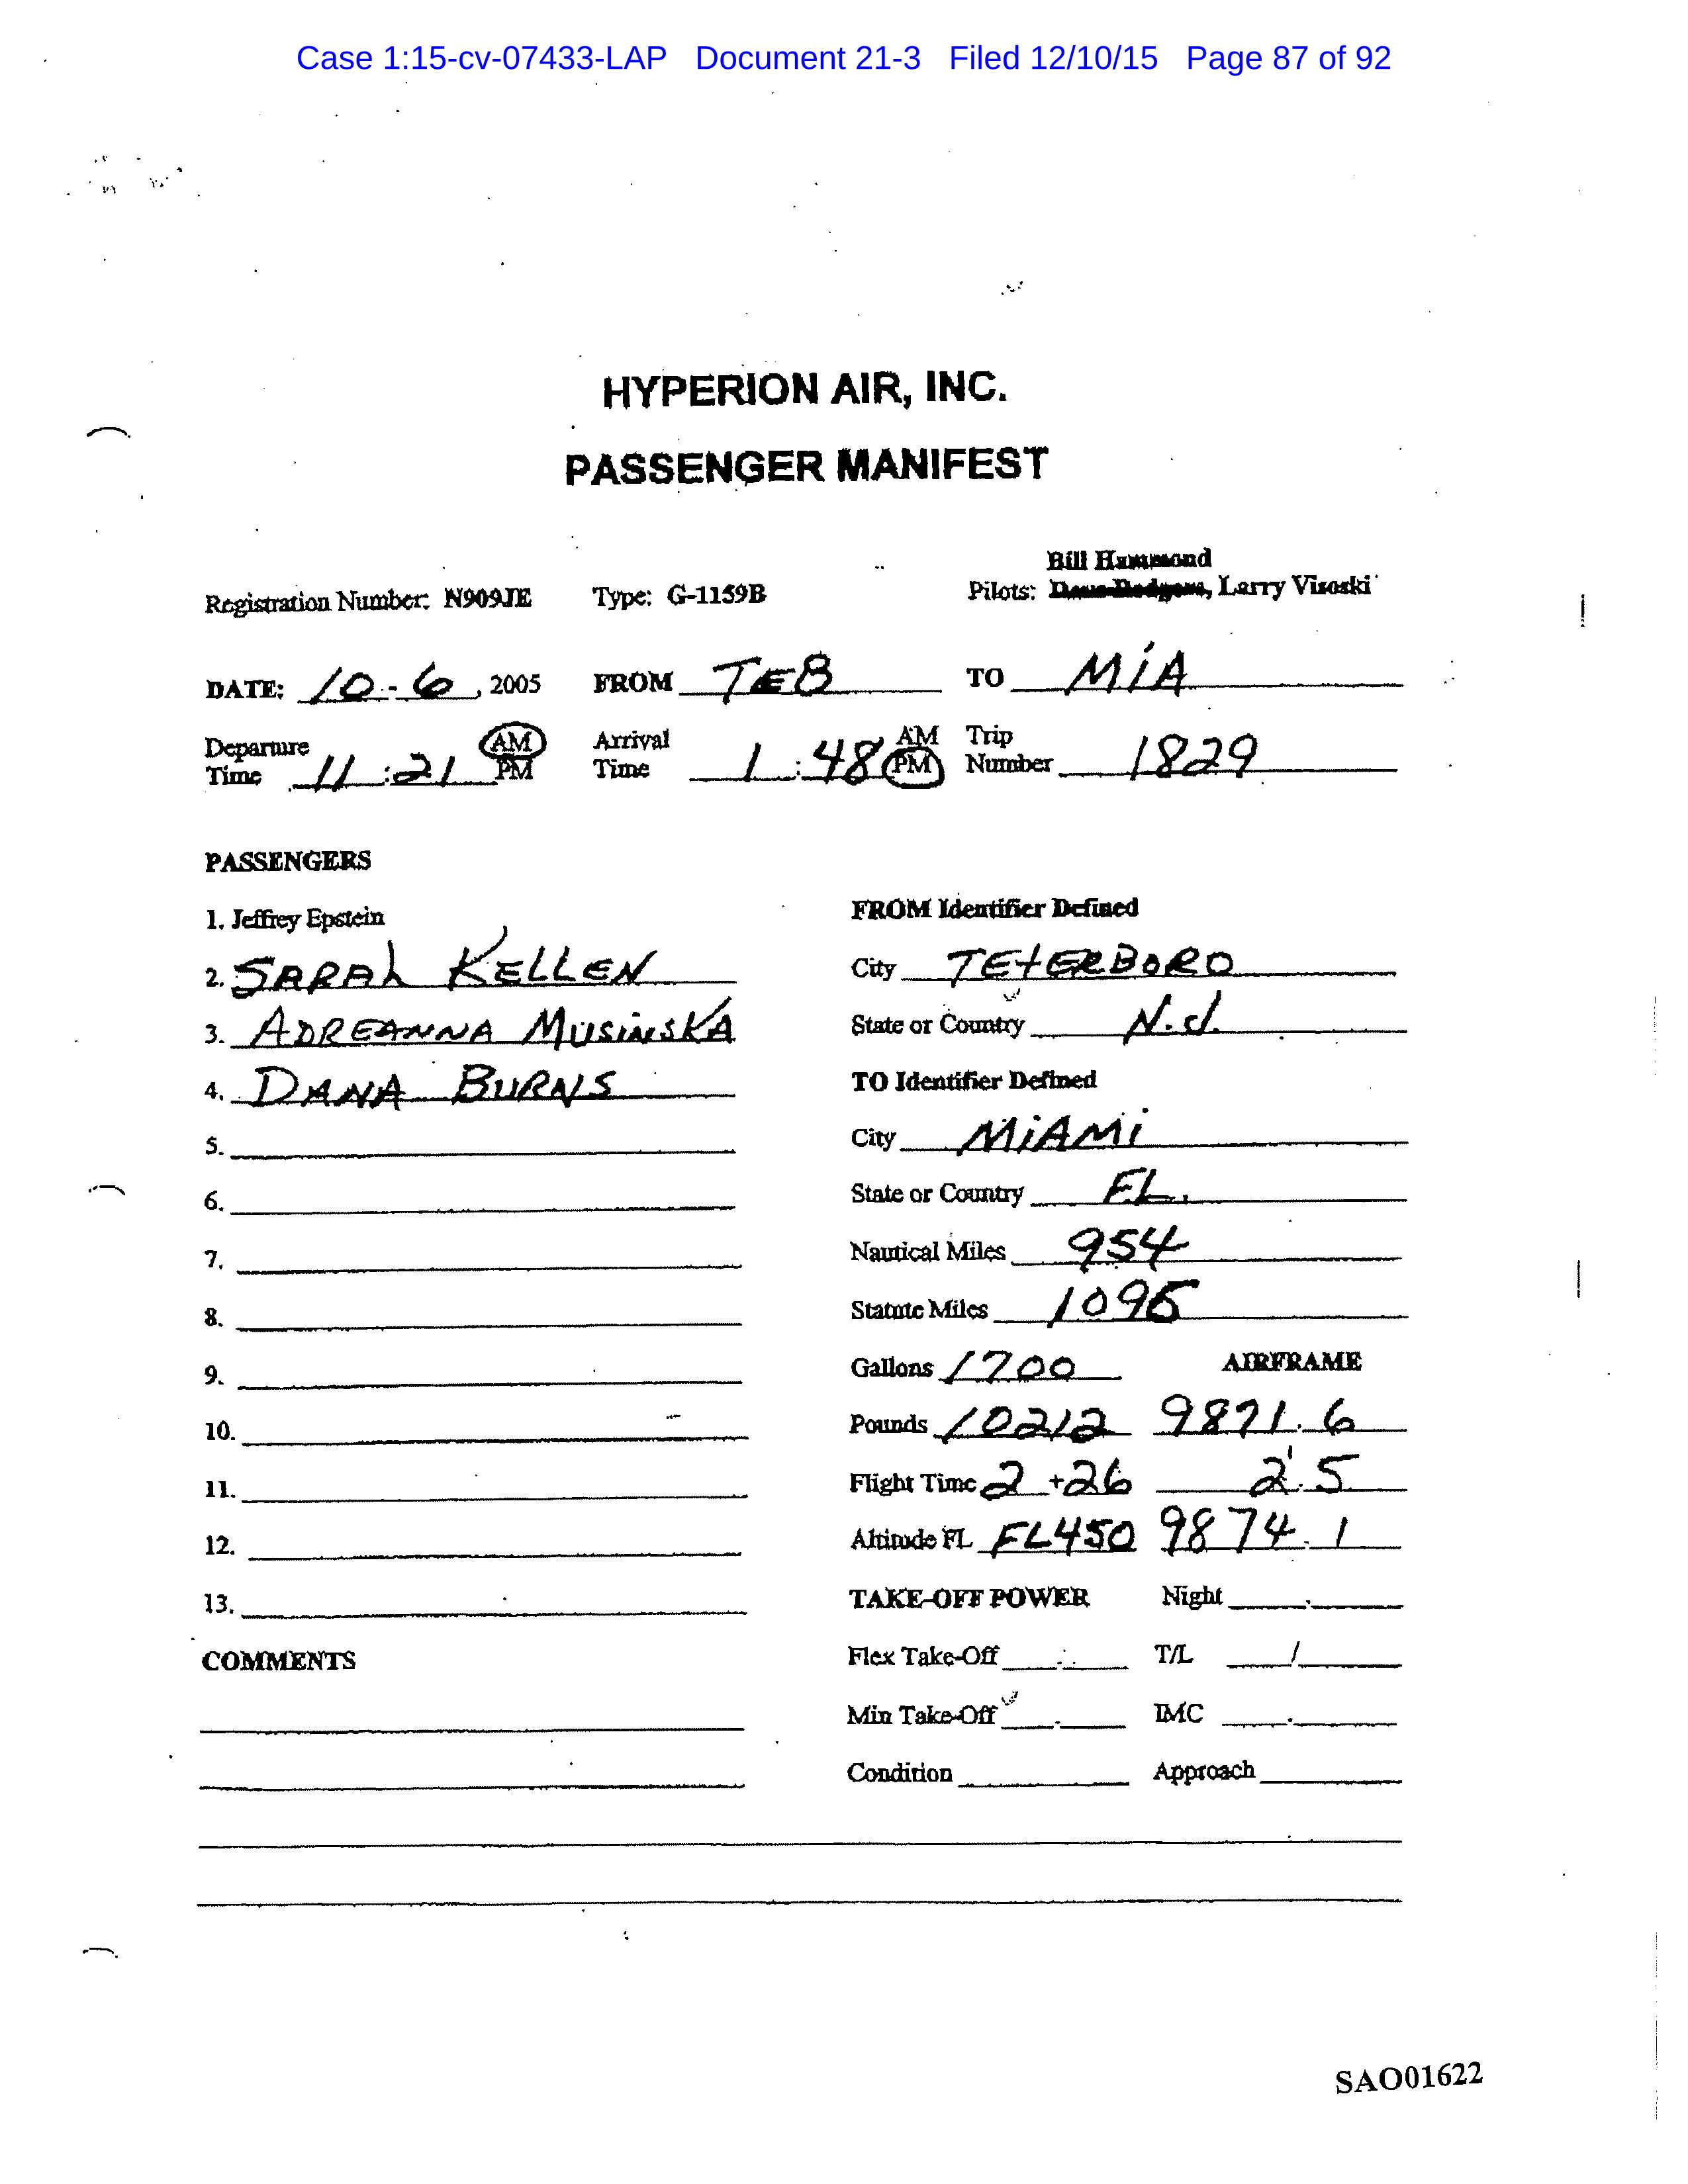 Case 1:15-cv-07433-LAP Document 21-3 Filed 12/10/15 Page 87 of 92
HYPERION AIR, INC.
PASSENGER MANIFEST
Bill Hammond
Registration Number: N909JE Type: G-1159B Pilots: Doug Rodgers, Larry Visoski
DATE: 10-6, 2005 FROM TEB TO MIA
Departure Time 11:21 AM PM Arrival Time 1:48 AM PM Trip Number 1829
PASSENGERS
1. Jeffrey Epstein
2. SARAh KELLEN
3. ADREANNA MUSINSKA
4. DANA BURNS
5.
6.
7.
8.
9.
10.
11.
12.
13.
COMMENTS
FROM Identifier Defined
City TETERBORO
State or Country N.J.
TO Identifier Defined
City MiAMi
State or Country FL.
Nautical Miles 954
Statute Miles 1096
Gallons 1700 AIRFRAME
Pounds 10212 9871.6
Flight Time 2+26 2.5
Altitude FL FL450 9874.1
TAKE-OFF POWER Night
Flex Take-Off T/L /
Min Take-Off IMC
Condition Approach
SAO01622